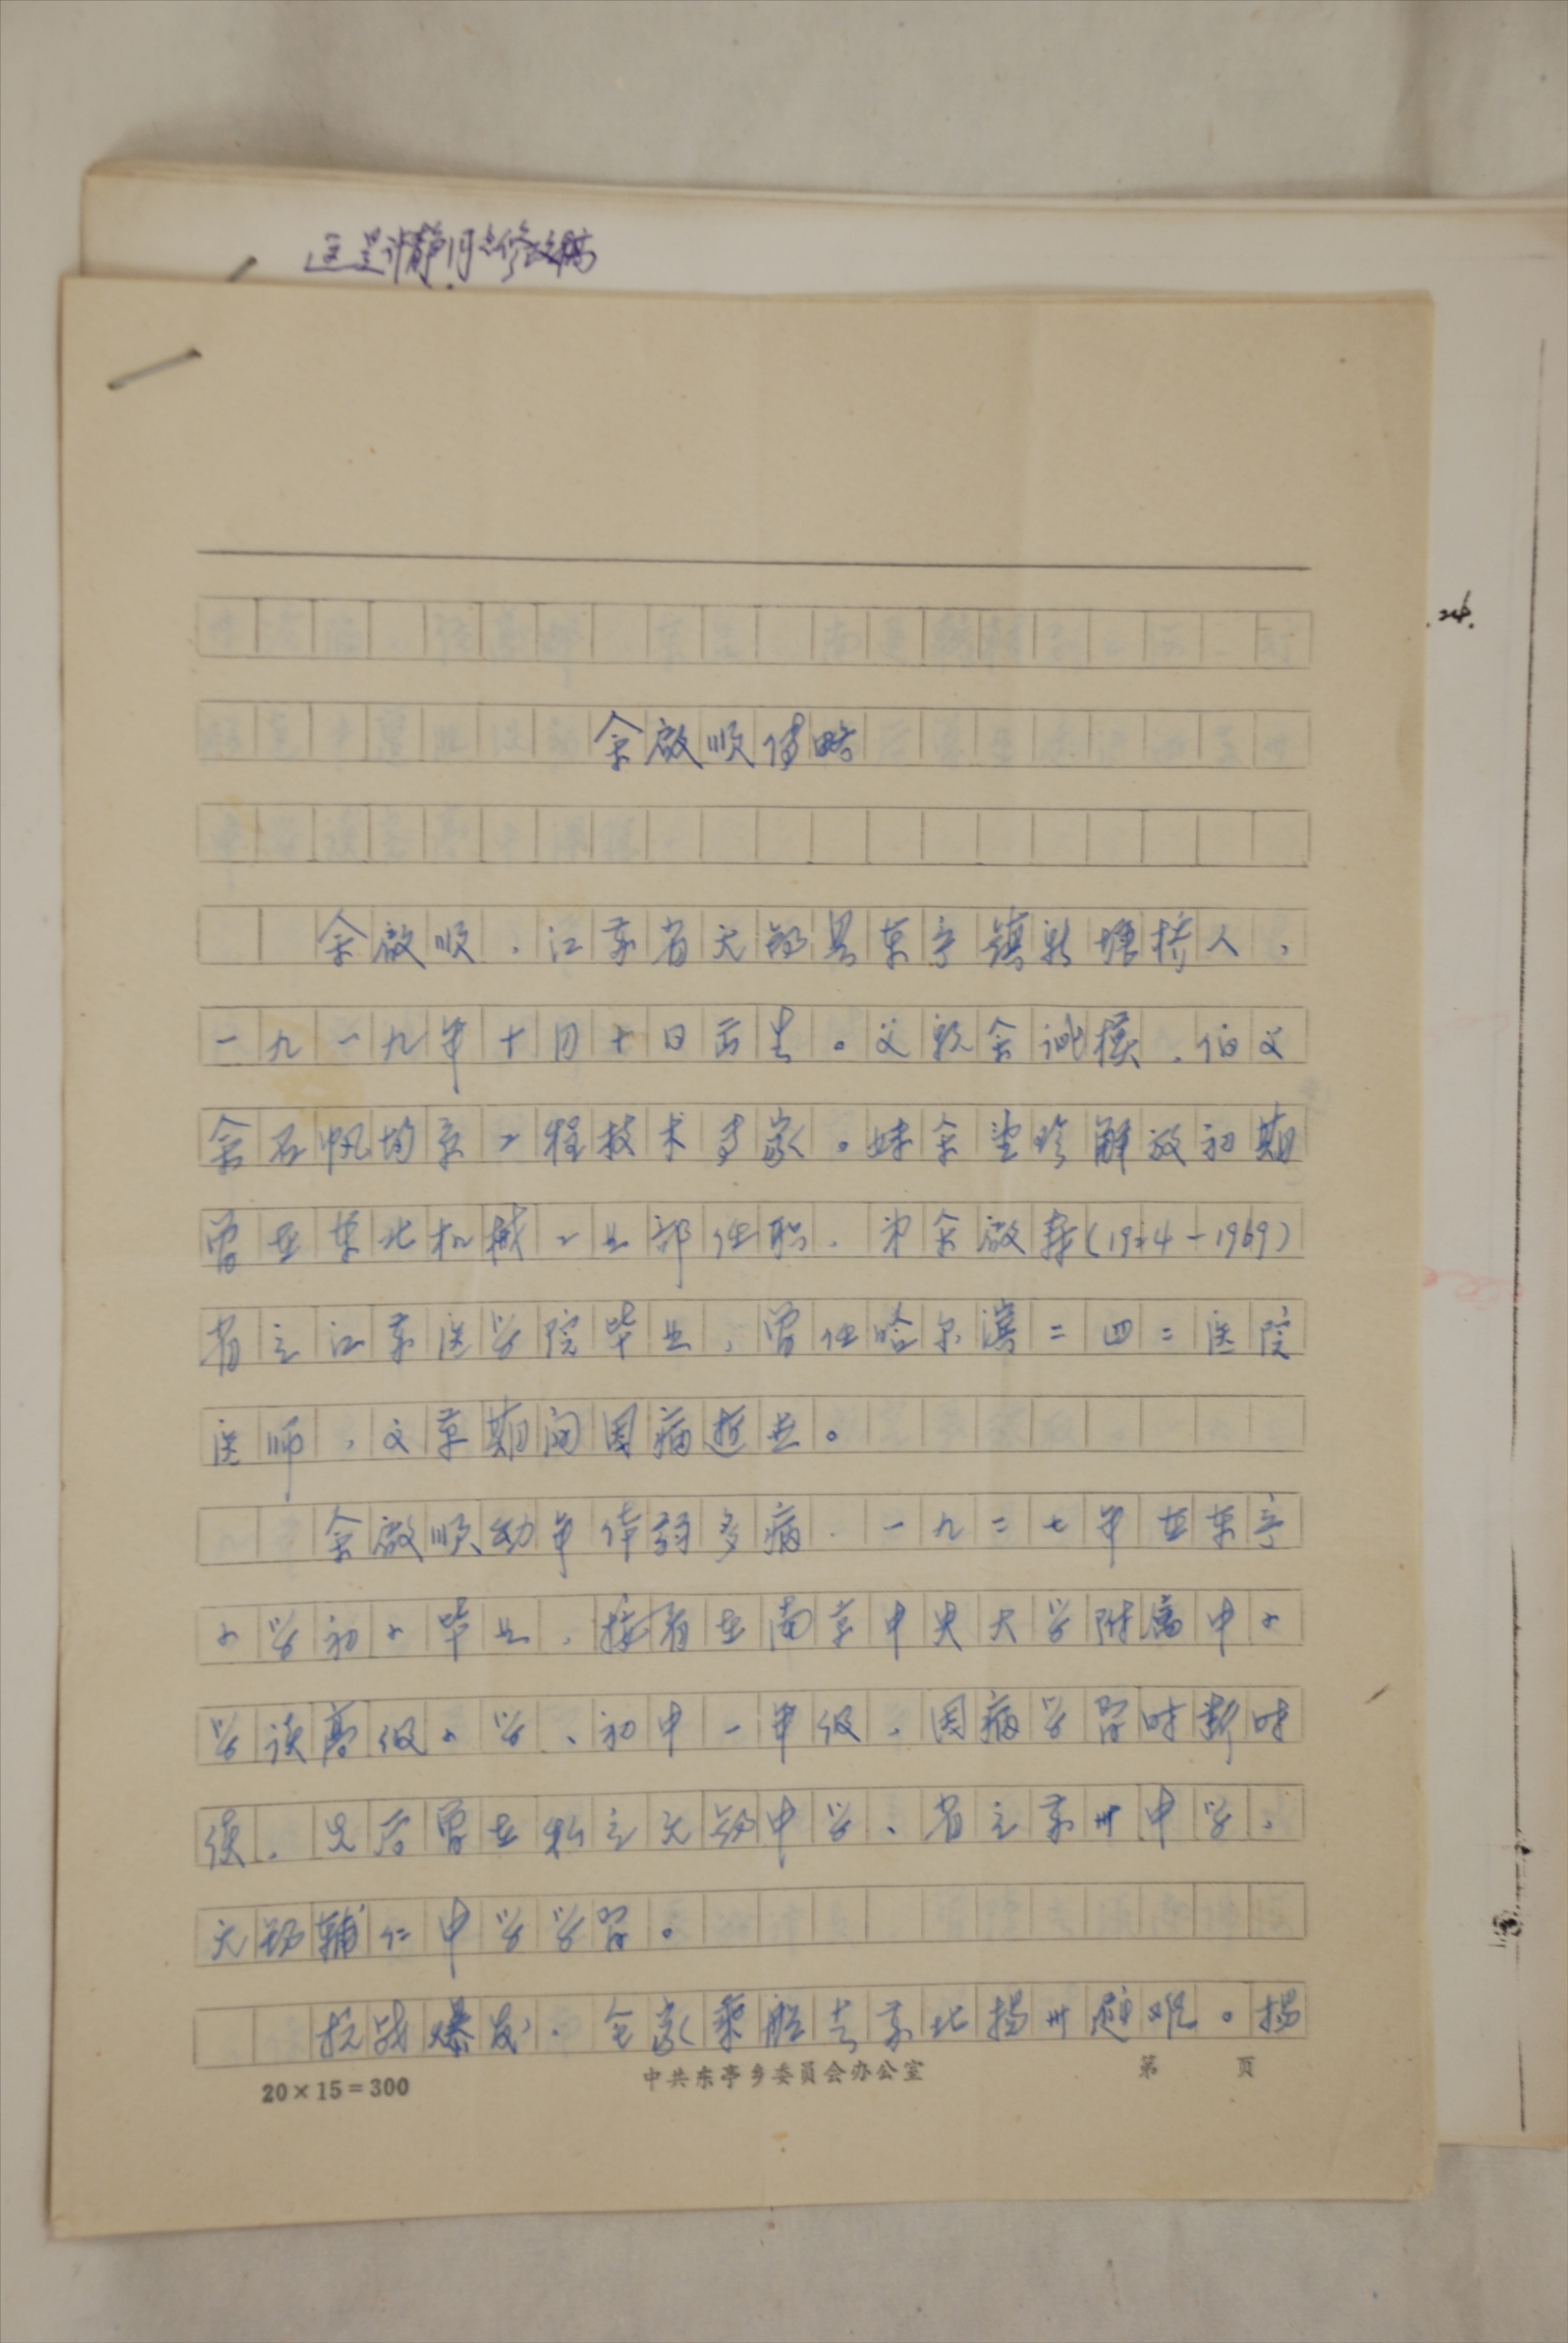 这是许静同志修改稿
余啟顺传略
余啟顺，江苏省无锡县东亭镇新塘桥人，
一九一九年十月十日出生。父亲余诚模，伯父
余石帆均系工程技术专家。妹余望珍解放初期
曾在东北机械工业部任职，弟余啟寿(1924-1969)
省立江苏医学院毕业，曾任哈尔滨二四二医院
医师，文革期间因病逝世。
余啟顺幼年体弱多病，一九二七年在东亭
小学初小毕业，接着在南京中央大学附属中小
学读高级小学、初中一年级，因病学习时断时
续，先后曾在私立无锡中学、省立苏州中学、
无锡辅仁中学学习。
抗战爆发，全家乘船去苏北扬州避难。扬
20×15=300 中共东亭乡委员会办公室 第 页